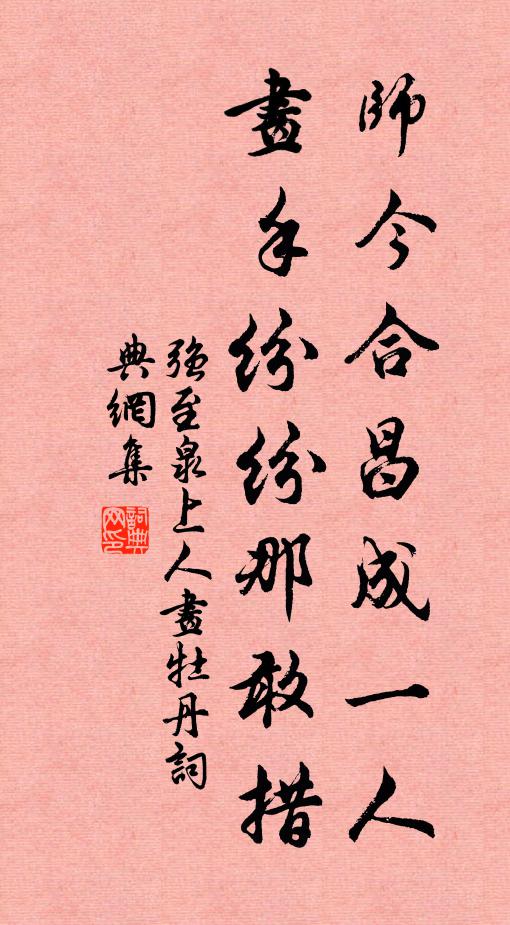 師今合昌成一人
畫手紛紛那敢措
強至泉上人畫牡丹詞
典網集
詞典網印